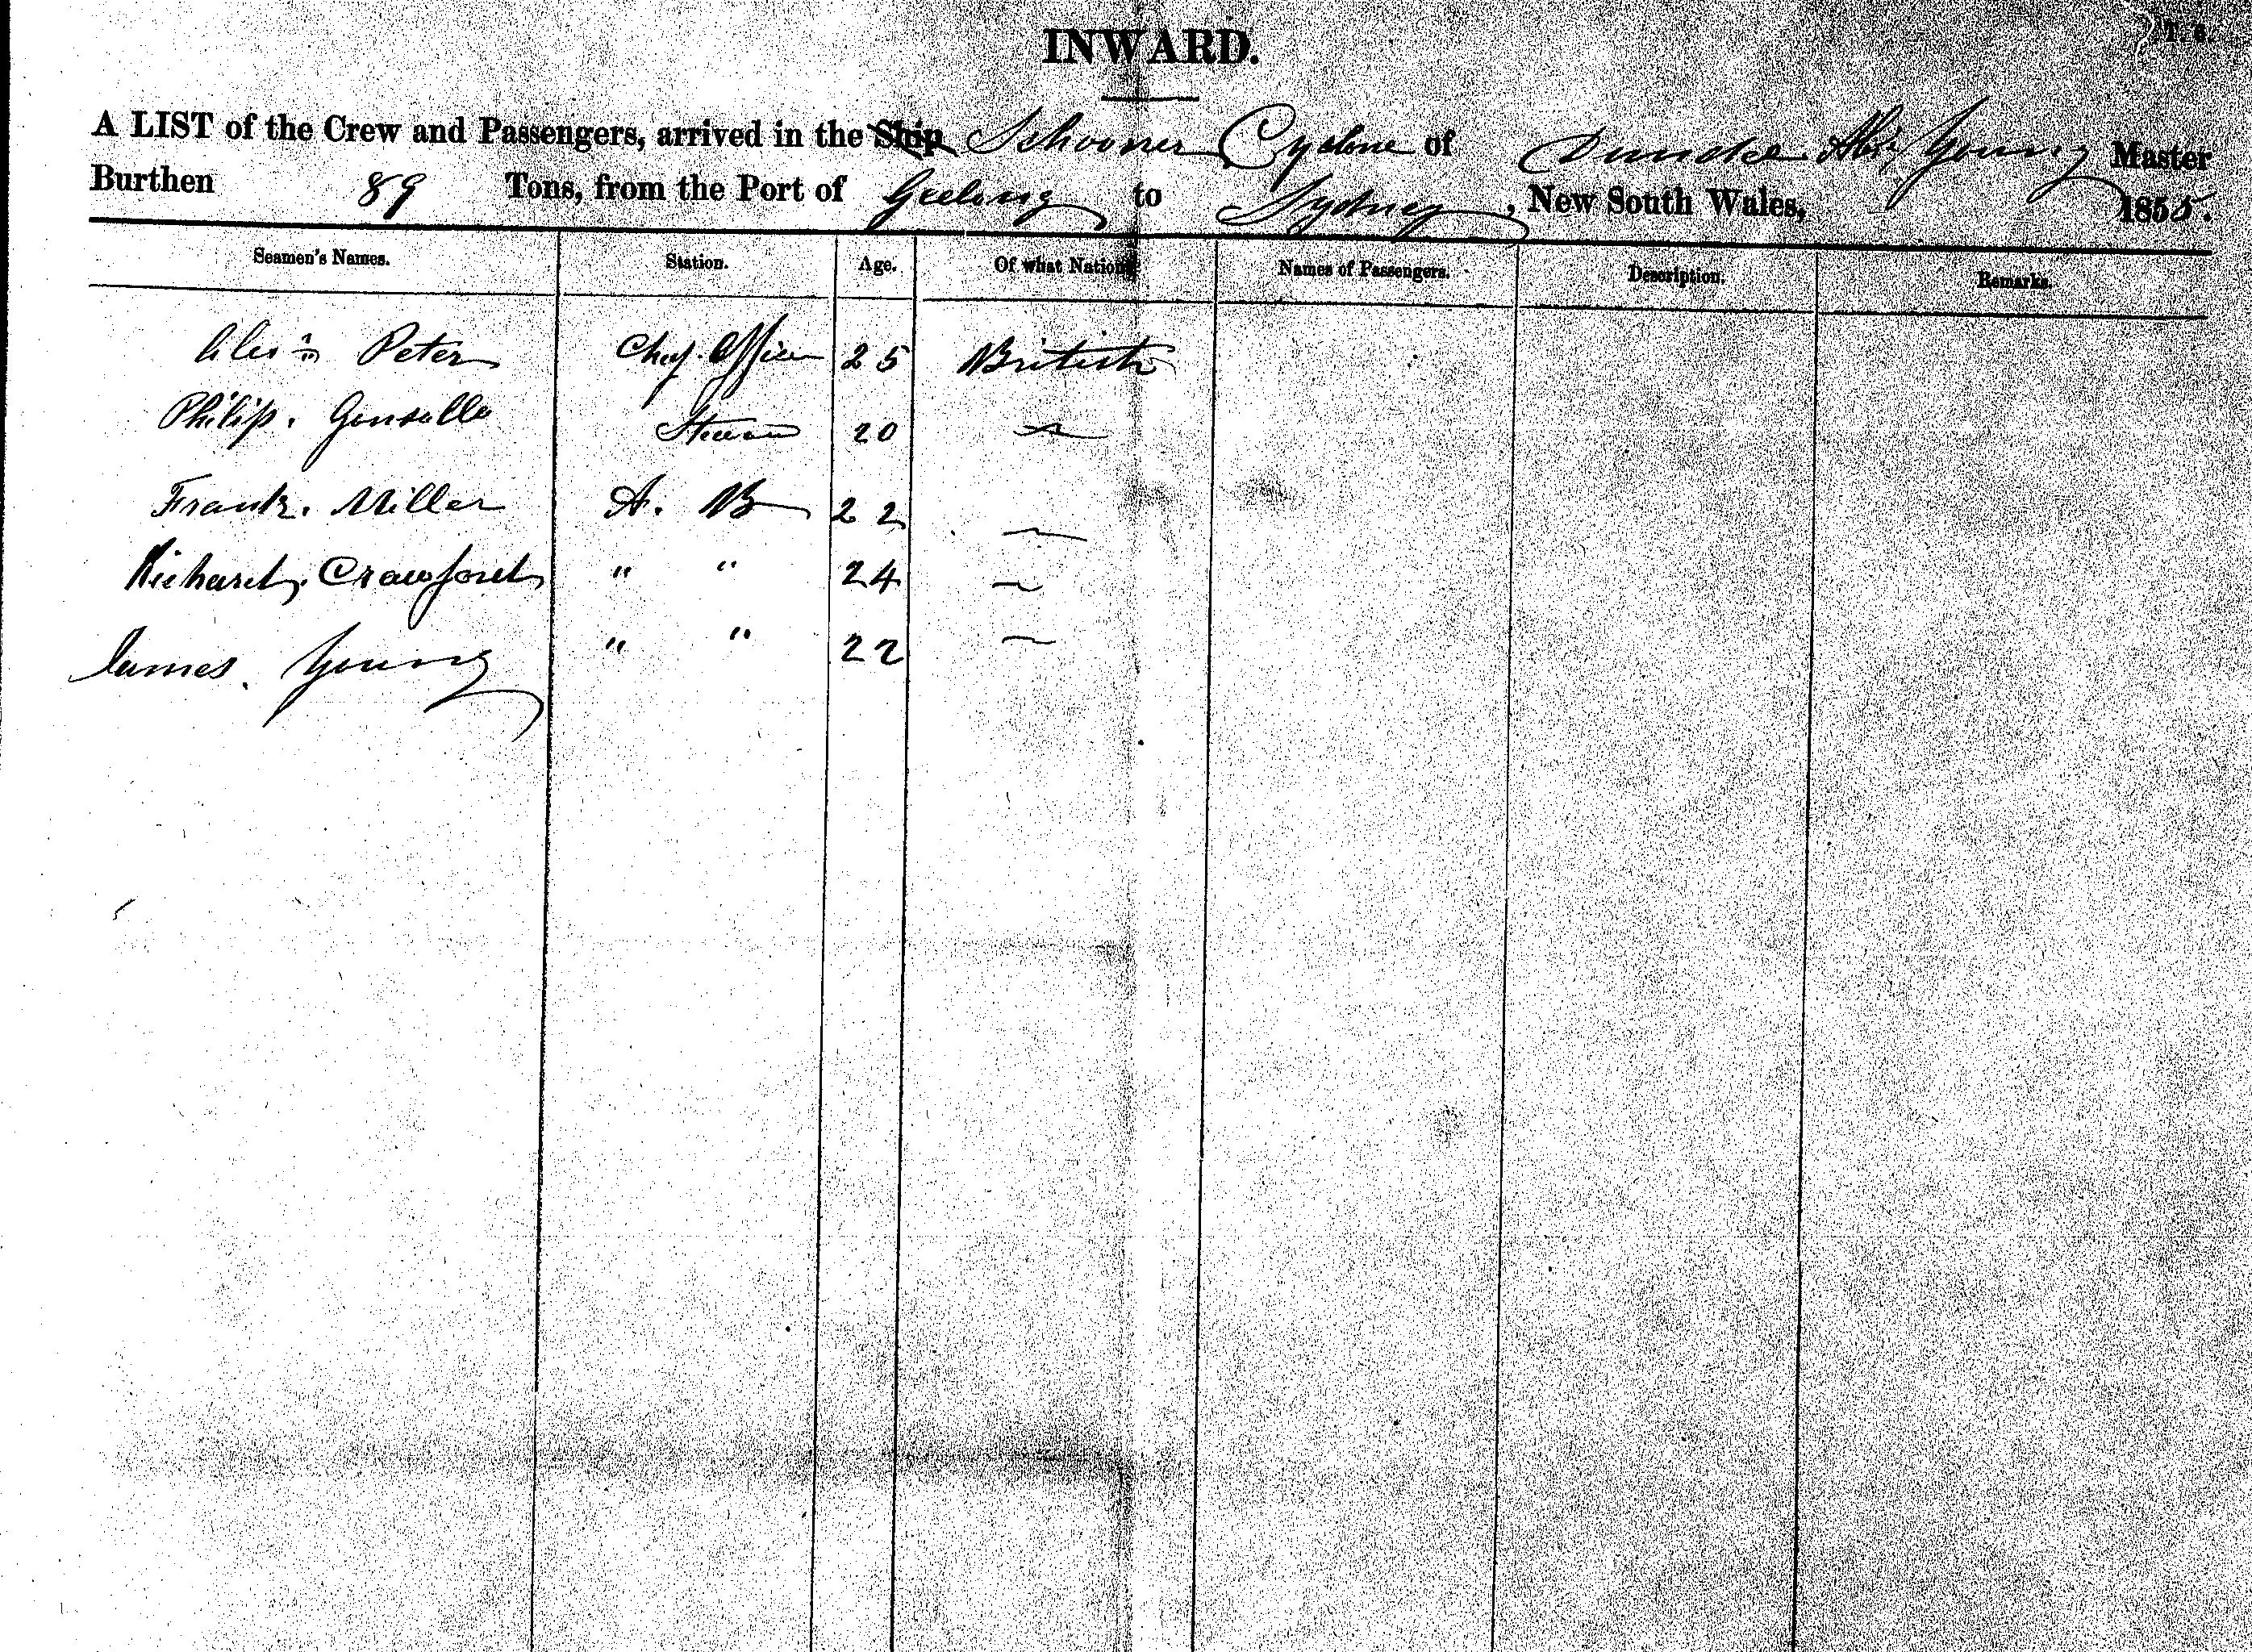 INWARD.
A LIST of the Crew and Passengers, arrived in the Ship Schooner Cyclone of Dundee Young Master
Burthen 89 Tons, from the Port of Geelong to Sydney, New South Wales, 1855.
Seamen's Names. Station. Age. Of what Nation. Names of Passengers. Description. Remarks.
Peter Chief Officer 25 British
Philip. 20
Frank. Miller A. B 22
Richard. Crawford " " 24
James. Young " " 22